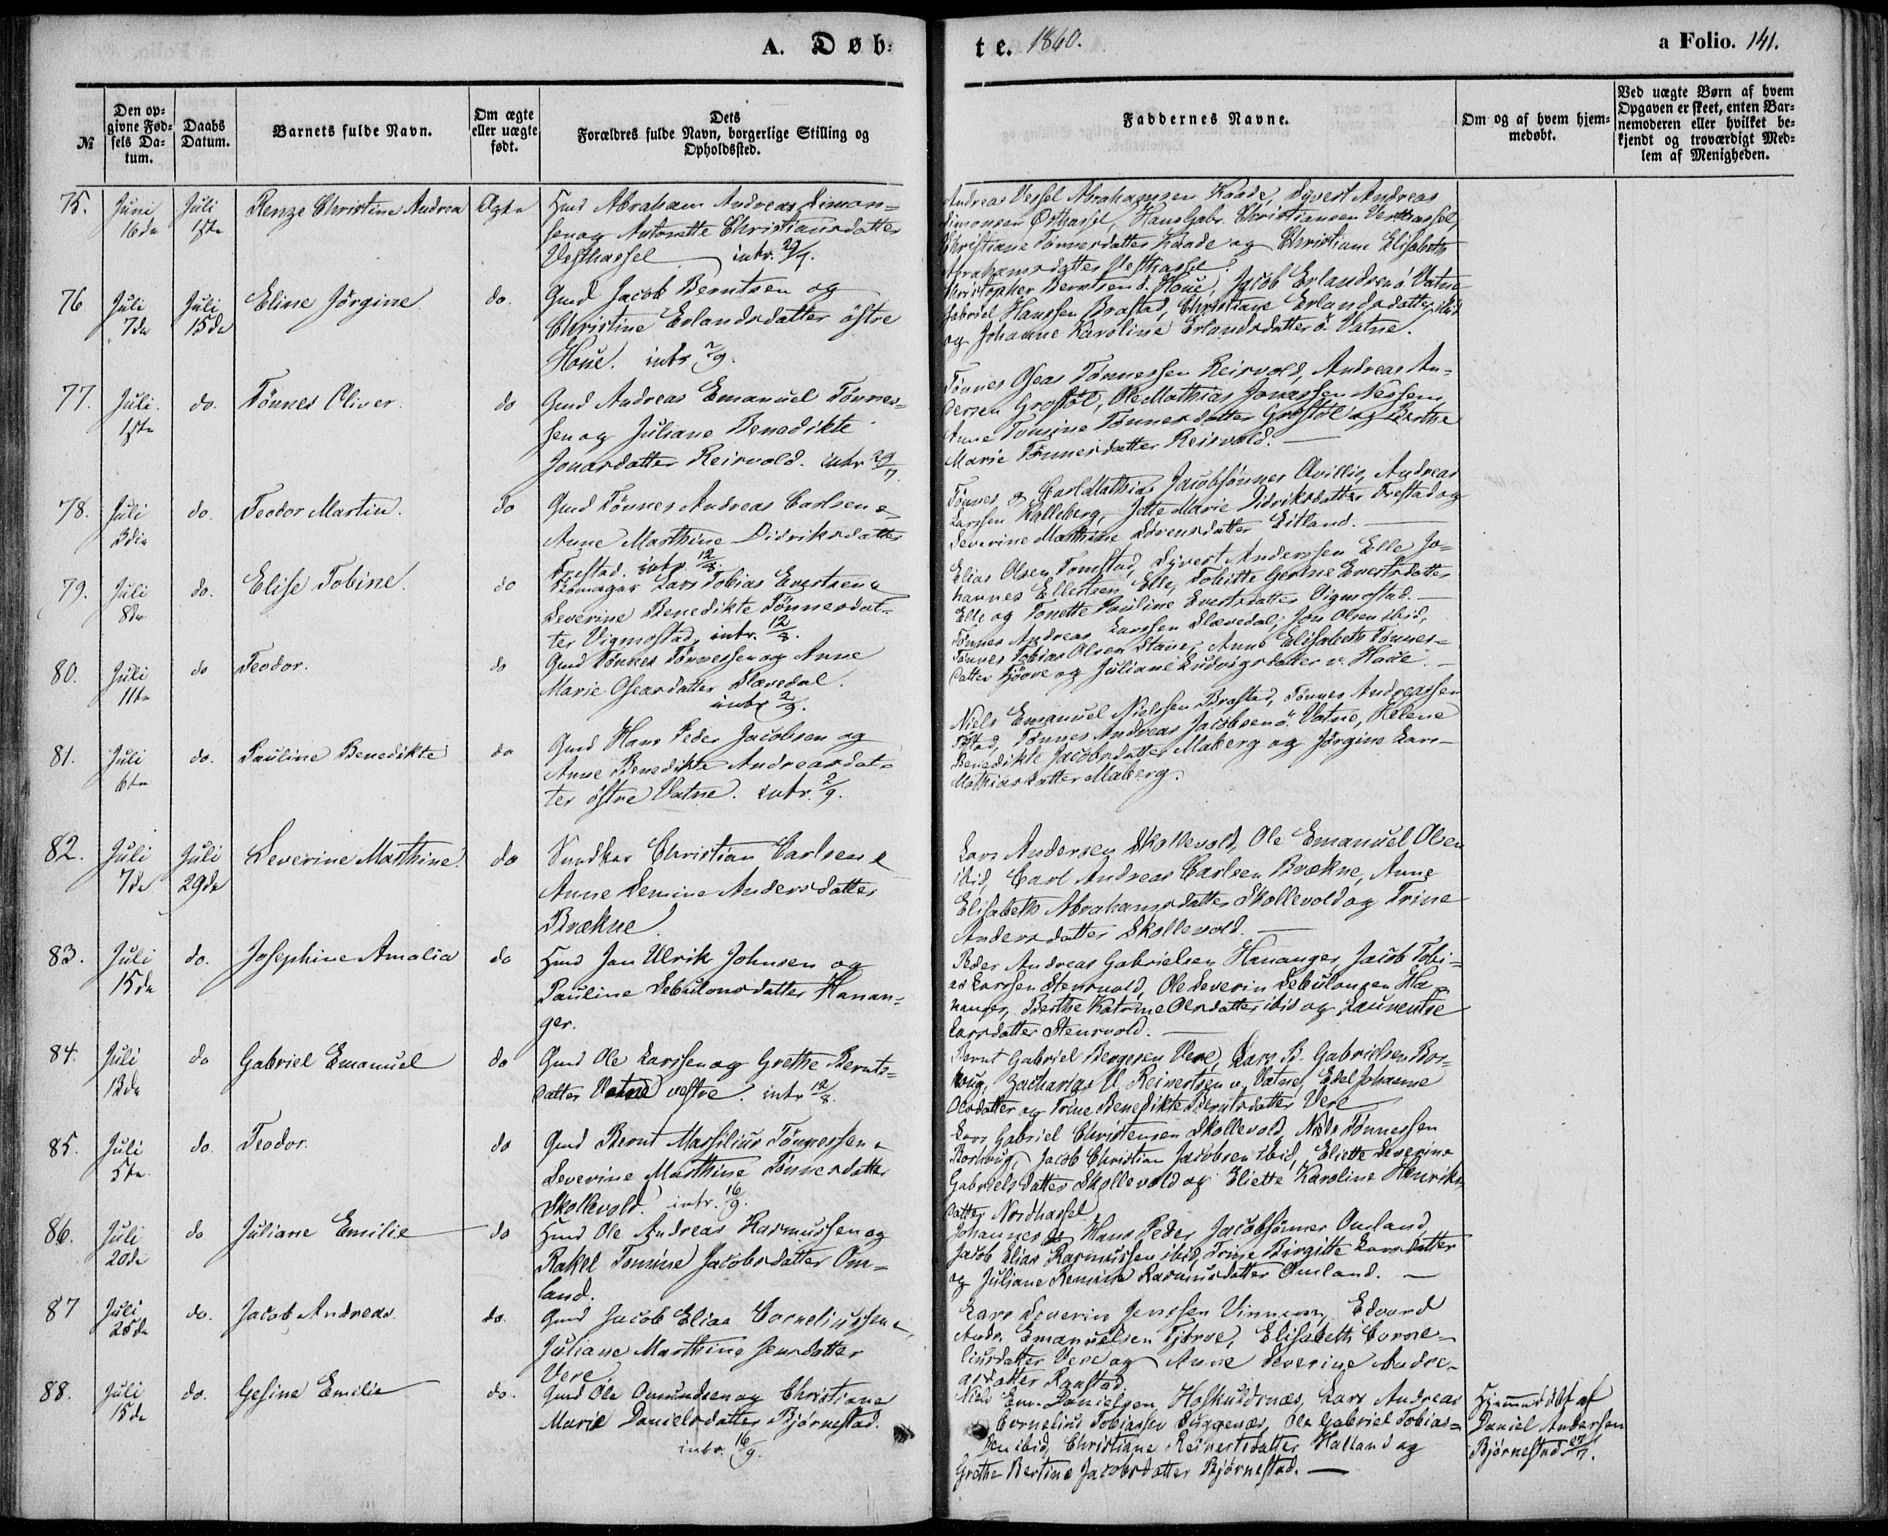 A. Døb=
te. 1860.
a Folio. 141.
№
Den op=
givne Fød=
sels Da=
tum.
Daabs
Datum.
Barnets fulde Navn.
Om ægte
eller uægte
født.
Dets
Forældres fulde Navn, borgerlige Stilling og
Opholdssted.
Faddernes Navne.
Om og af hvem hjem-
medøbt.
Ved uægte Børn af hvem
Opgaven er skeet, enten Bar-
nemoderen eller hvilket be-
kjendt og troværdigt Med-
lem af Menigheden.
75. Juni 16de Juli 1ste Renze Christine Andrea Ægte
Hmd Abraham Andreas Simon-
sen og Antonette Christiansdatter
Vesthassel intr. 29/7.
Andreas Vessel Abrahamsen Kaade, Syvert Andreas
Simonsen Østhassel, Hans Gabr. Christiansen Vesthassel,
Christiane Tønnesdatter Kaade og Christiane Elisabeth
Abrahamsdatter Vesthassel.
76 Juli 7de Juli 15de Eline Jørgine do.
Gmd Jacob Berntsen og
Christine Erlandsdatter østre
Houe. intr. 2/9.
Christopher Berntsen ø. Houe, Jacob Erlandsen ø Vatne
Gabriel Hanssen Brastad, Christiane Erlandsdatter ibid
og Johanne Karoline Erlandsdatter ø. Vatne.
77. Juli 1ste do. Tønnes Oliver. do
Gmd Andreas Emanuel Tønnes-
sen og Juliane Benedikte
Jonasdatter Reirvold. intr 29/7.
Tønnes Oseas Tønnessen Reirvold, Andreas An-
dersen Grostøl, Ole Mathias Jonassen Nessem,
Anne Tomine Tønnesdatter Grostøl og Berthe
Marie Tønnesdatter Reirvold.
78. Juli 3die do. Teodor Martin. do
Gmd Tønnes Andreas Carlsen &
Anne Marthine Didriksdatter
Frestad. intr. 12/8.
Tønnes & Carl Mathias Jacobsønner Qvillis, Andreas
Larssen Kalleberg, Jette Marie Didriksdatter Frestad og
Severine Mathine Sørensdatter Eitland.
79. Juli 8de do. Elise Tobine. do
Skomager Lars Tobias Evertsen &
Severine Benedikte Tønnesdat-
ter Vigmostad, intr. 12/8.
Elias Olsen Tomstad, Syvert Anderssen Elle, Jo-
hannes Ellertsen Elle, Tobitte Gertine Evertsdatter
Elle og Tonette Pauline Evertsdatter Vigmostad.
80. Juli 11te do Teodor. do
Gmd Tønnes Tønnessen og Anne
Marie Osearsdatter Slævedal.
intr 2/9.
Tønnes Andreas Larssen Slævedal, Jon Olsen ibid,
Tønnes Tobias Olsen Stave, Anne Elisabeth Tønnes-
datter Tjørve og Juliane Ludvigsdatter v. Houe.
81. Juli 6te do. Pauline Benedikte do
Gmd Hans Peder Jacobsen og
Anne Benedikte Andreasdat-
ter østre Vatne. intr. 2/9.
Niels Emanuel Nielssen Brastad, Tønnes Andreassen
Tønnes Andreas Jacobsen ø. Vatne, Helene
Benedikte Jacobsdatter Maberg og Jørgine Lars-
Mathiasdatter Maberg.
82. Juli 7de Juli 29de Severine Marthine do
Christian Carlsen &
Anne Semine Andersdatter
Brækne.
Lars Andersen Skollevold, Ole Emanuel Olsen
ibid, Carl Andreas Carlsen Brækne, Anne
Elisabeth Abrahamsdatter Skollevold og Trine
Andersdatter Skollevold.
83. Juli 15de do. Josephine Amalia do
Hmd Jan Ulrik Johnsen og
Pauline Sebulonsdatter Hanan-
ger.
Peder Andreas Gabrielsen Hananger, Jacob Tobi-
as Larssen Steinvold, Ole Severin Sebulonsen Ha-
nanger, Berthe Katrine Olsdatter ibid og Laurentse
Larsdatter Steinvold.
84. Juli 12de do Gabriel Emanuel do
Gmd Ole Larssen og Grethe Bernts-
datter Vatne vestre. intr 12/8.
Bernt Gabriel Bergesen Vere, Lars B. Gabrielsen Bor-
haug, Zacharias U. Reinertsen v. Vatne, Edel Johanne
Olsdatter og Trine Benedikte Berntsdatter Vere
85. Juli 5te do. Teodor. do
Gmd Bernt Massilius Tønnessen &
Severine Marthine Tønnesdatter
Skollevold. intr. 16/9.
Lars Gabriel Christensen Skollevold, Niels Tønnessen
Borhaug, Jacob Christian Jacobsen ibid, Eliette Severine
Gabrielsdatter Skollevold og Eliette Karoline Henriks-
datter Nordhassel.
86. Juli 20de do Juliane Emilie do
Hmd Ole Andreas Rasmussen og
Rakel Tomine Jacobsdatter Om-
land.
Johannes og Hans Peder Jacobsønner Omland,
Jacob Elias Rasmussen ibid, Trine Birgitte Larsdatter
og Juliane Remine Rasmusdatter Omland.
87 Juli 25de do. Jacob Andreas. do.
Gmd Jacob Elias Corneliussen &
Juliane Marthine Jensdatter
Vere.
Lars Severin Jenssen Vinnem, Edvard
Andr. Emanuelsen Tjørve, Elisabeth Corne-
liusdatter Vere og Anne Severine Andre-
asdatter Raustad.
88. Juli 15de do. Gesine Emilie do.
Gmd Ole Omundsen og Christiane
Marie Danielsdatter Bjørnestad.
intr. 16/9.
Niels Em. Danielsen Hoskuldsnæs, Lars Andreas
Cornelius Tobiassen Duggenæs, Ole Gabriel Tobias-
sen ibid, Christiane Reinertsdatter Halland og
Grethe Bertine Jacobsdatter Bjørnestad.
Hjemmedøbt af
Daniel Andersen
Bjørnestad 27/7.